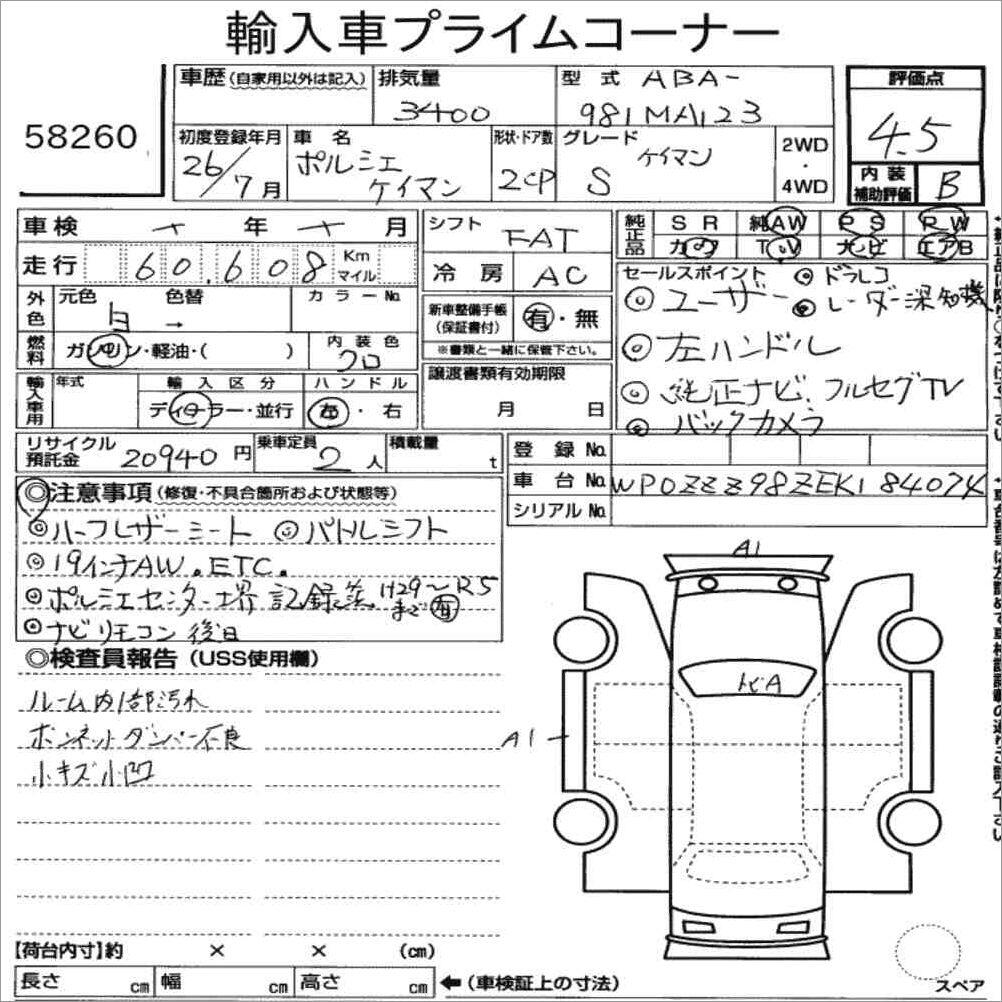 輸入車プライムコーナー
58260
車歴(自家用以外は記入) 排気量 3400
型式 ABA-
981MA123
評価点 4.5
初度登録年月 26/7月
車名 ポルシェ
ケイマン
形状・ドア数 2CP
グレード ケイマン
S
2WD・4WD
内装補助評価 B
車検 年 月
走行 60,608 Km マイル
シフト FAT
冷房 AC
純正品 SR 純AW PS RW
カワ TV ナビ エアB
外色 元色 白 → 色替 カラーNo.
燃料 ガソリン・軽油・( ) 内装色 クロ
新車整備手帳(保証書付) 有・無
※書類と一緒に保管下さい。
セールスポイント ◎ドラレコ
◎ユーザー ◎レーダー探知機
◎左ハンドル
◎純正ナビ、フルセグTV
◎バックカメラ
輸入車用 年式 輸入区分 ディーラー・並行 ハンドル 左・右
譲渡書類有効期限 月 日
リサイクル預託金 20940円 乗車定員 2人 積載量 t
登録No.
車台No. WP0ZZZ98ZEK184074
シリアルNo.
◎注意事項(修復・不具合箇所および状態等)
◎ハーフレザーシート ◎パドルシフト
◎19インチAW。ETC。
◎ポルシェセンター堺 記録簿 H29〜R5まで有
◎ナビリモコン後日
◎検査員報告(USS使用欄)
ルーム内1部汚れ
ボンネットダンパー不良
小キズ小凹
A1
トビA
A1
【荷台内寸】約 × × (cm)
長さ cm 幅 cm 高さ cm ←(車検証上の寸法)
スペア